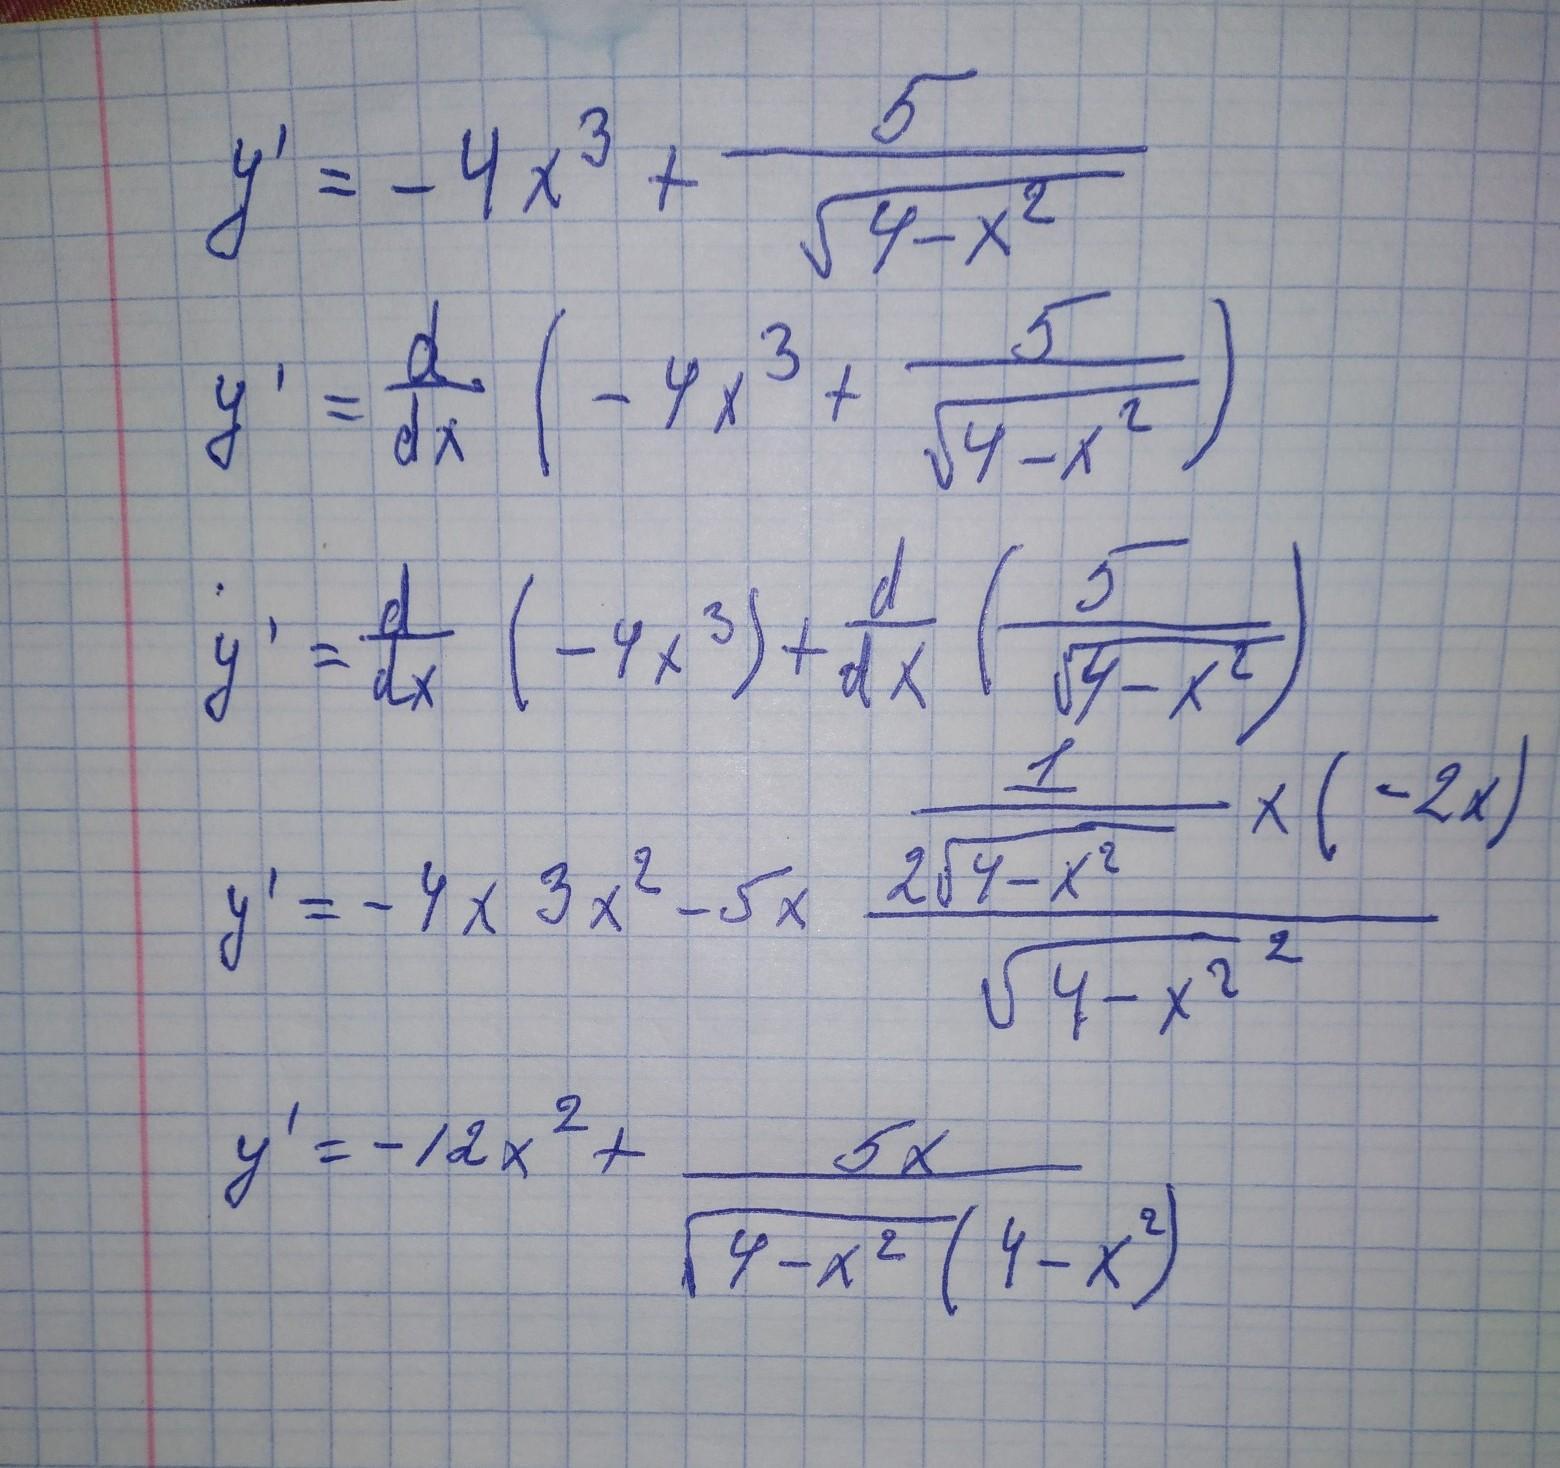 y' = -4x³ + 5/√(4-x²)
y' = d/dx (-4x³ + 5/√(4-x²))
y' = d/dx (-4x³) + d/dx (5/√(4-x²))
y' = -4 x 3x² - 5 x (1/(2√(4-x²)) x (-2x))/√(4-x²)²
y' = -12x² + 5x/(√(4-x²)(4-x²))